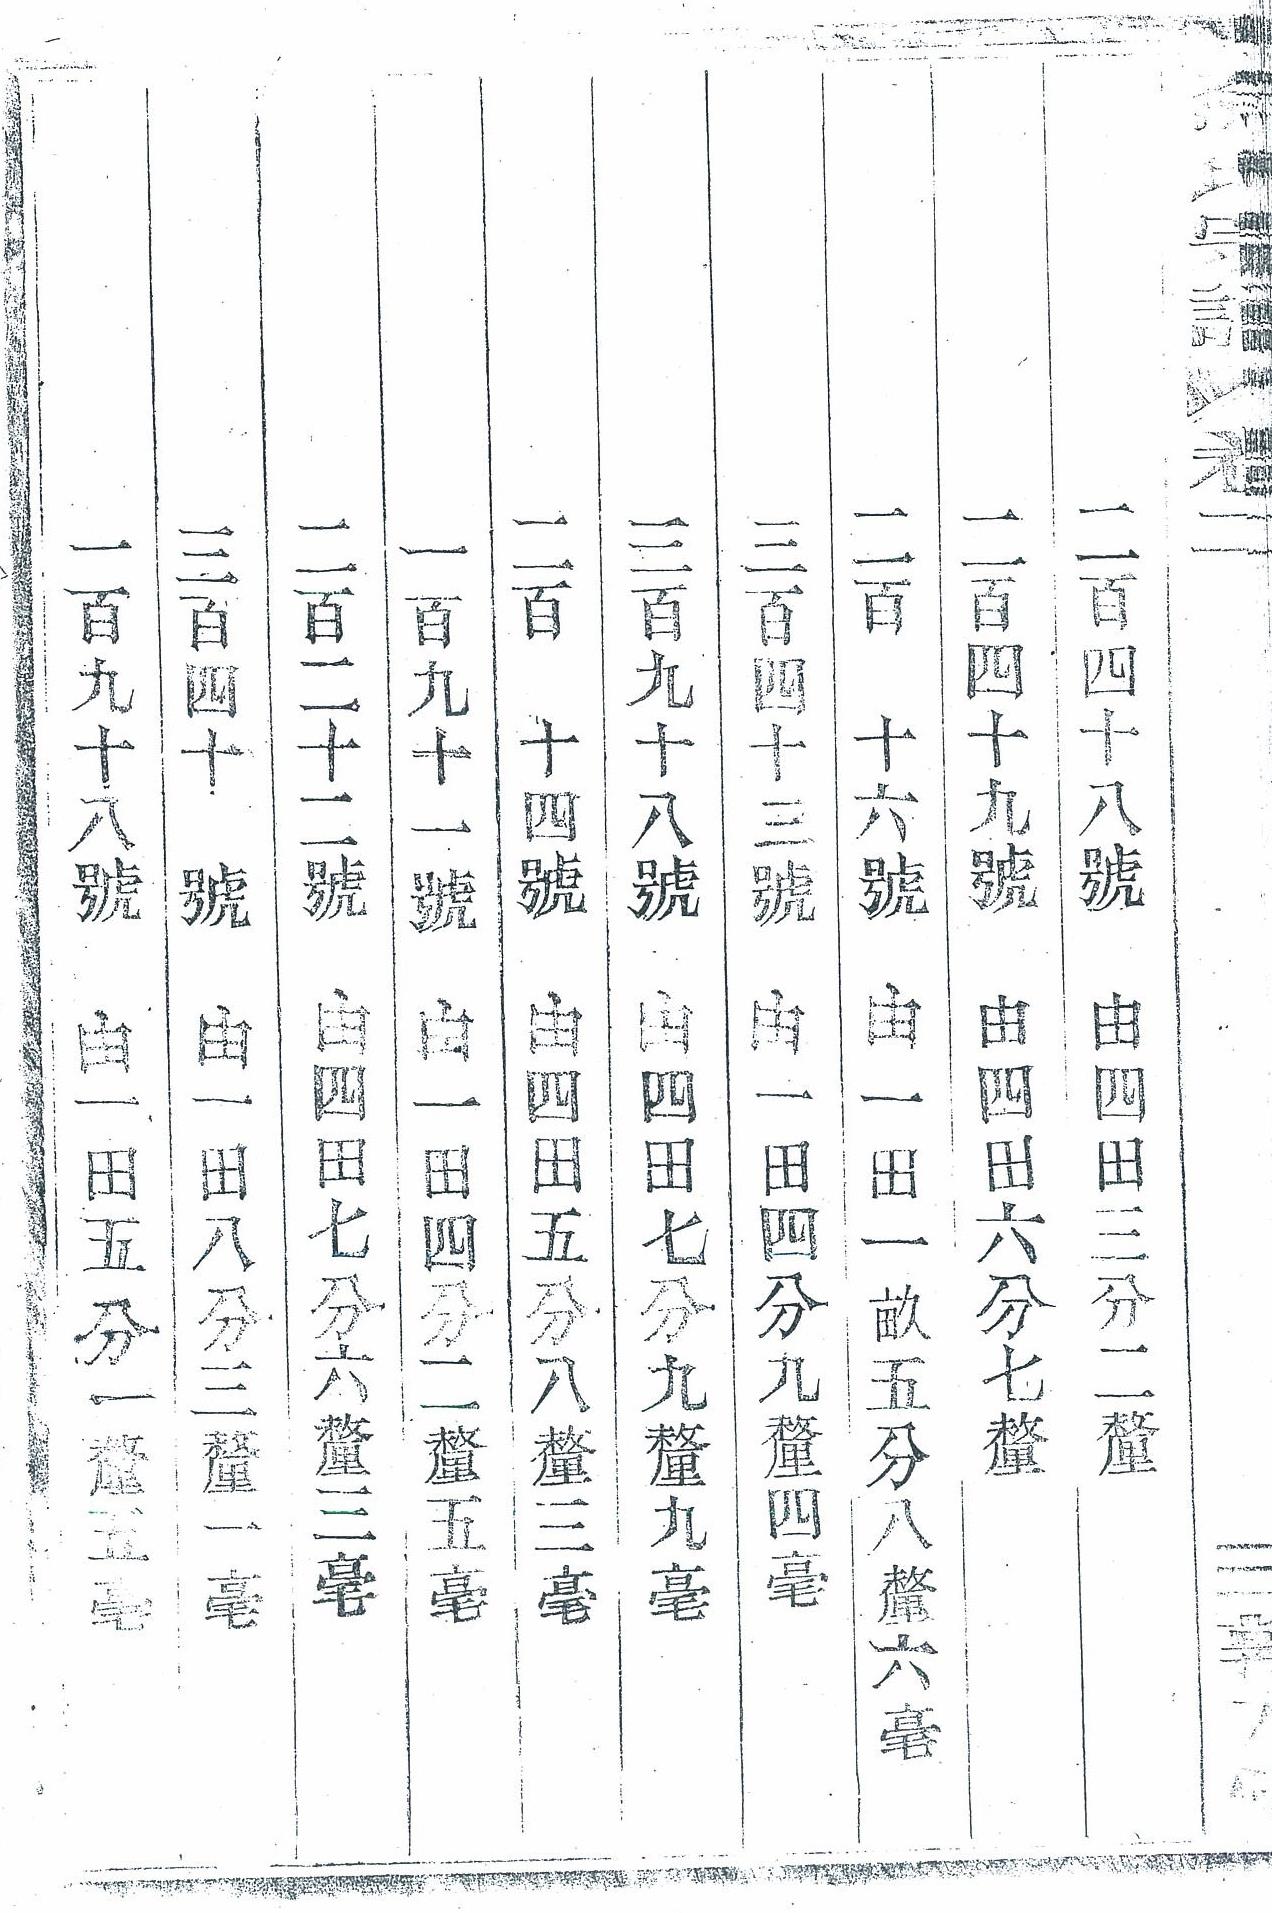 二百四十八號　由四田三分二釐
二百四十九號　由四田六分七釐
二百　十六號　由一田一畝五分八釐六毫
三百四十三號　由一田四分九釐四毫
三百九十八號　由四田七分九釐九毫
二百　十四號　由四田五分八釐三毫
一百九十一號　由一田四分二釐五毫
二百二十二號　由四田七分六釐三毫
三百四十　號　由一田八分三釐一毫
一百九十八號　由一田五分一釐五毫